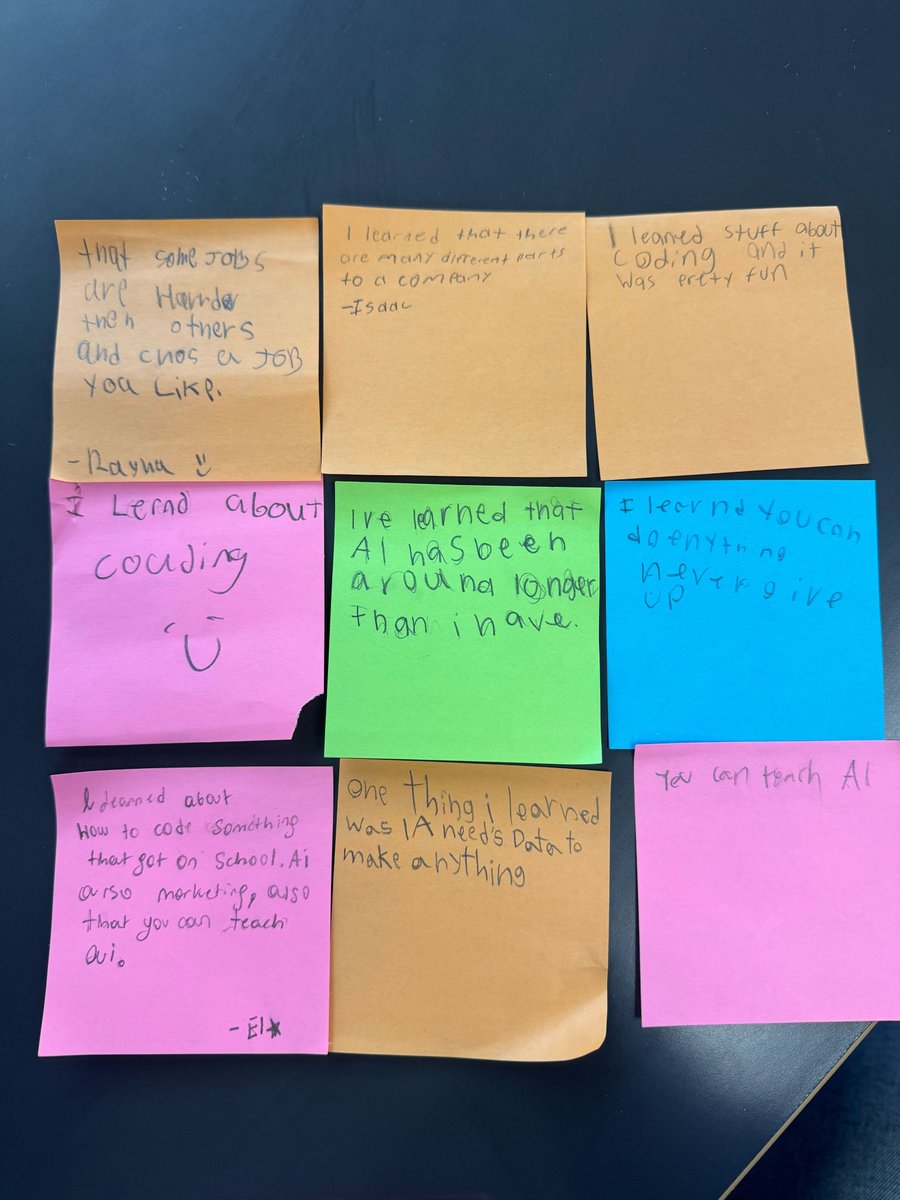 that some JOBS
are Harder
then others
and chos a JOB
you Like.
-Rayna
I learned that there
are many different parts
to a company
-Isaac
I learned stuff about
coding and it
was prety fun
I Lernd about
couding
Ive learned that
AI has been
around longer
than i have.
I learnd you can
do enything
never give
up
I learned about
How to code something
that got on School.Ai
arso marketing, also
that you can teach
avi.
-El
One thing i learned
was IA need's Data to
make anything
You can teach AI